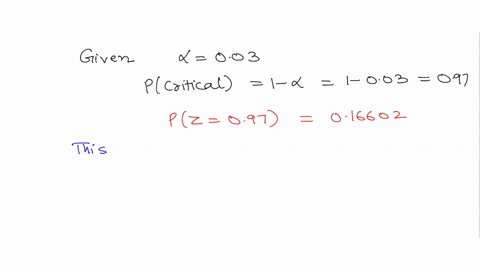 Given α = 0.03
P(Critical) = 1-α = 1-0.03 = 097
P(Z = 0.97) = 0.16602
This